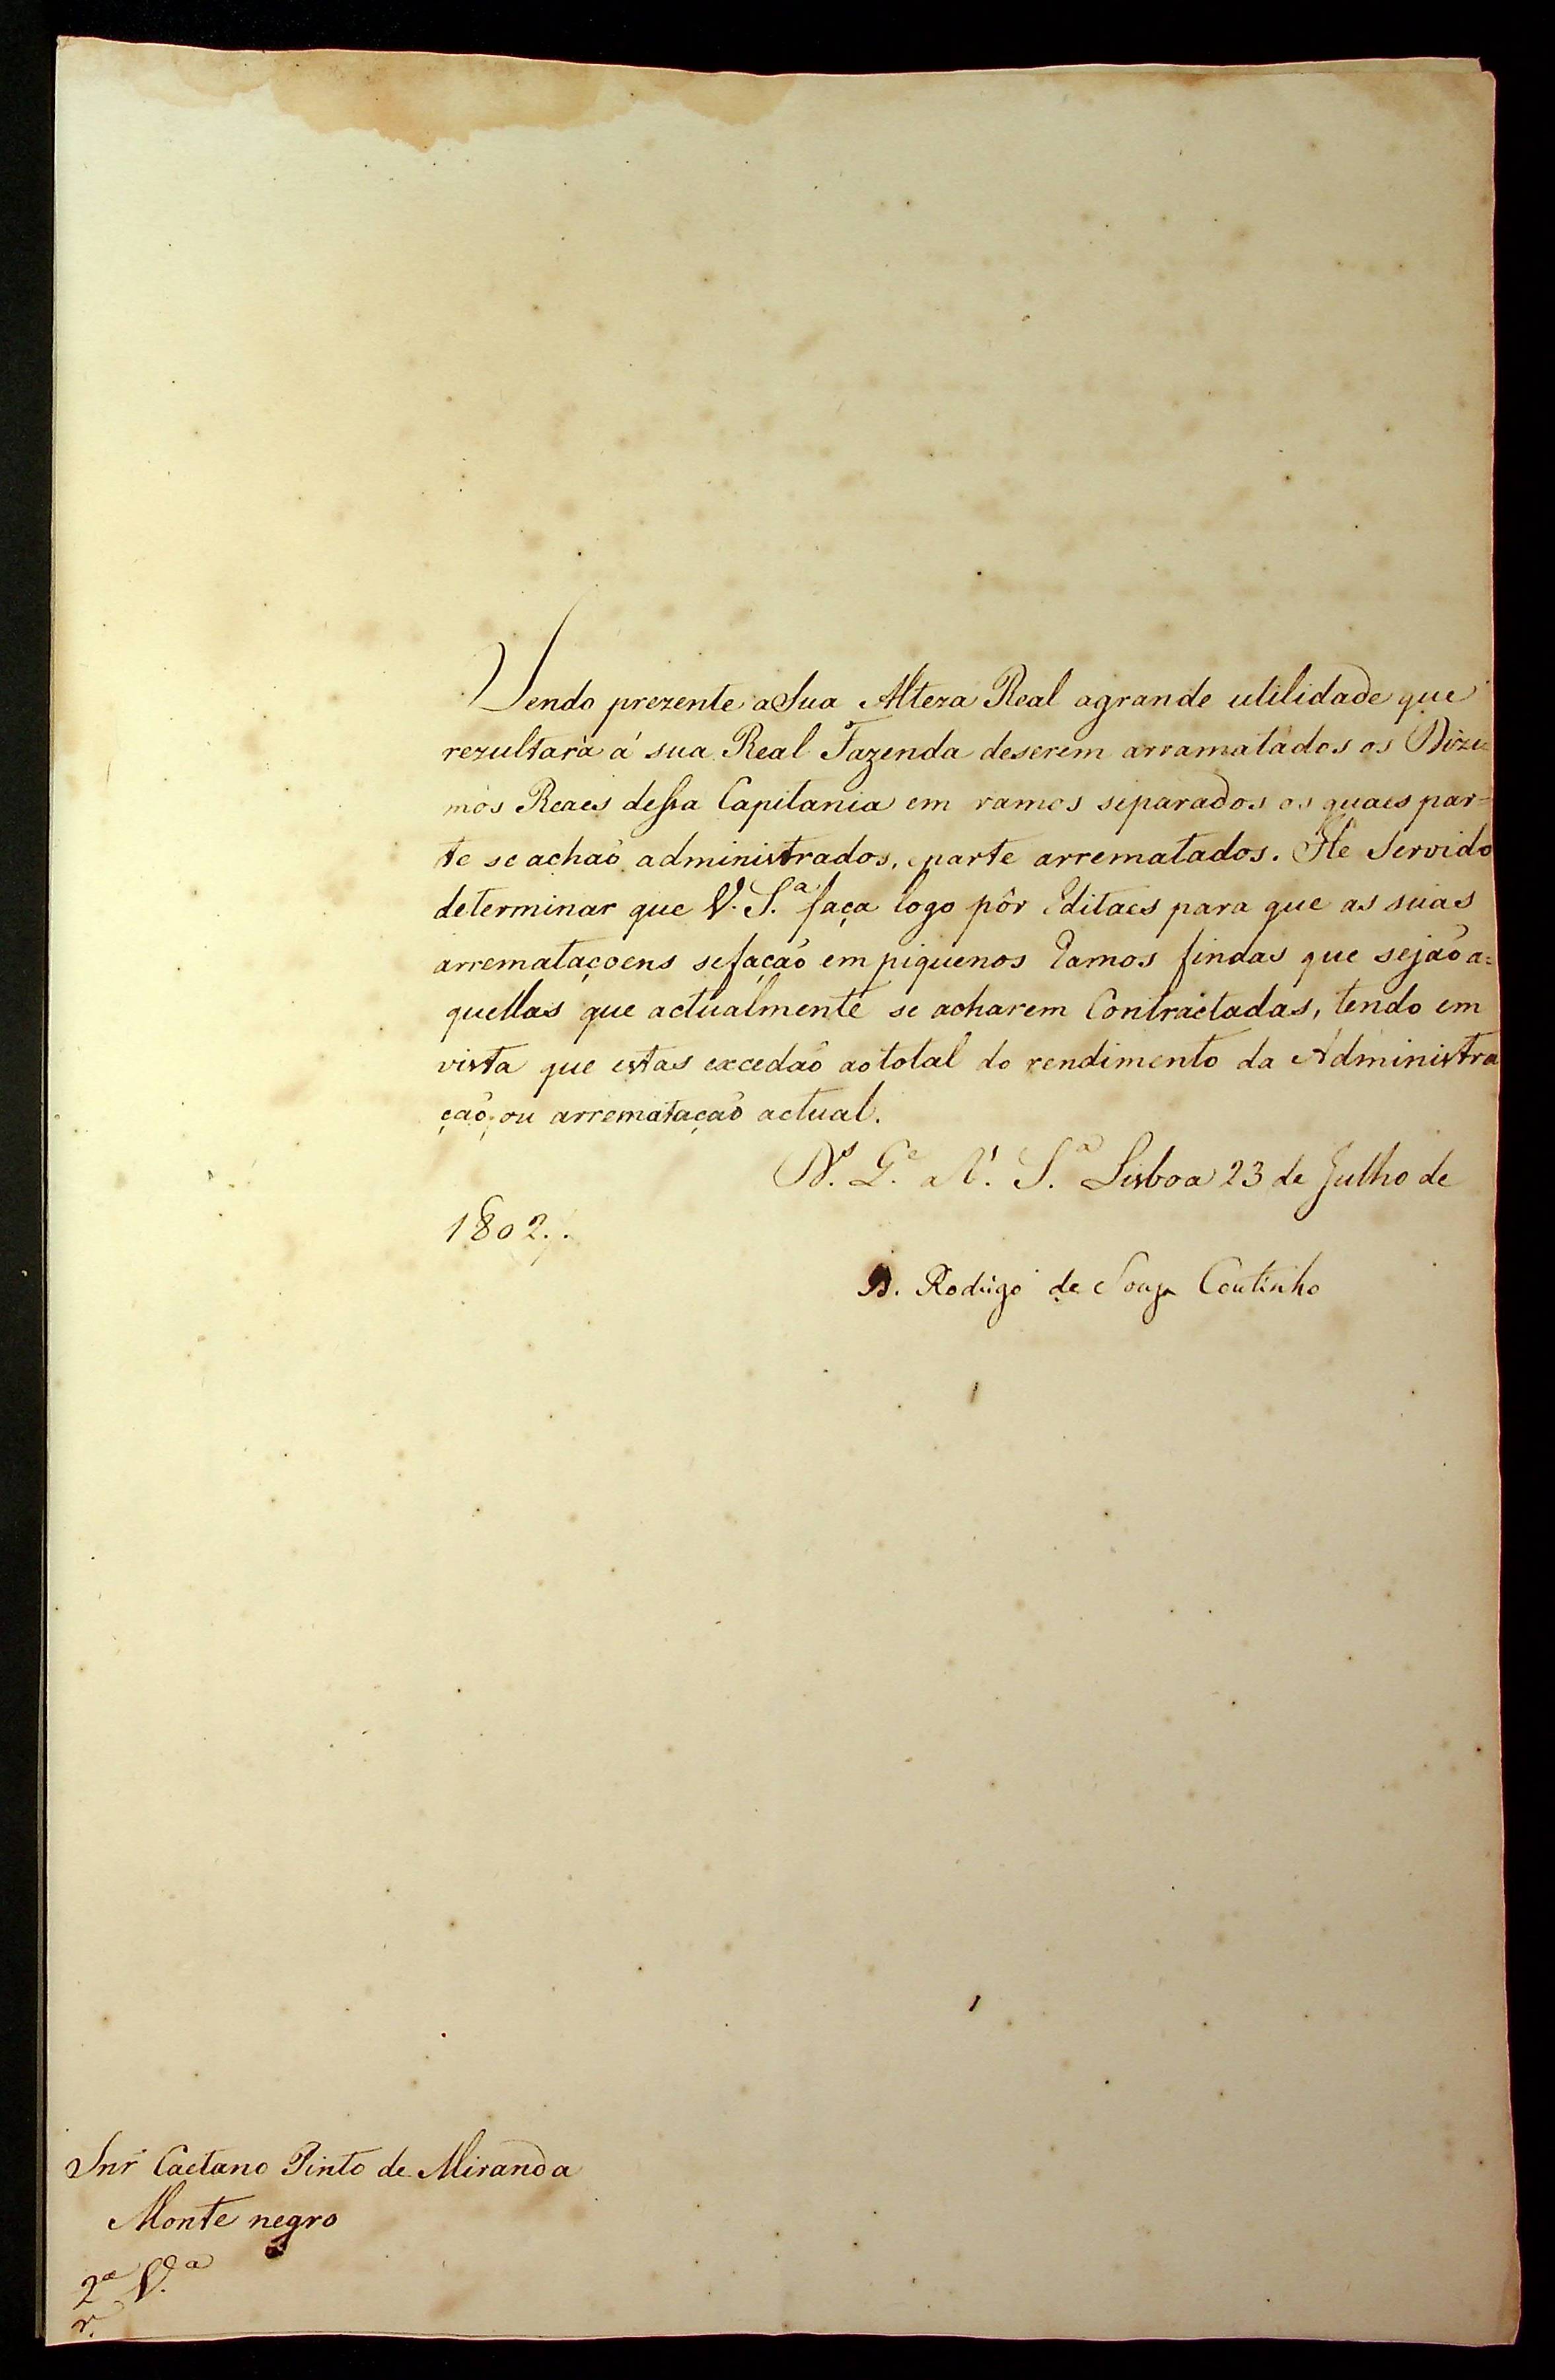 Sendo prezente a Sua Alteza Real agrande utilidade que
rezultará á sua Real Fazenda deserem arramatádos os Dizi=
mos Reaes dessa Capitania em ramos separados os quaes par=
te se achaõ administrados, eparte arrematados. He Servido
determinar que V. S.ª faça logo pôr Editaes para que as suas
arremataçoens sefaçaõ em piquenos Ramos findas que sejaõ a=
quellas que actualmente se acharem Contractadas, tendo em
vista que estas excedaõ aototal do rendimento da Administra
çaõ, ou arremataçaõ actual.
D.s G.e a V. S.ª Lisboa 23 de Julho de
1802..
D. Rodrigo de Souza Coutinho
Snr Caetano Pinto de Miranda
Monte negro
2ª V.ª
r.